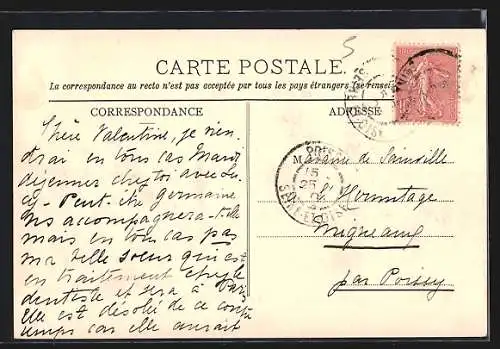 CARTE POSTALE.
La correspondance au recto n'est pas acceptée par tous les pays étrangers (se rensei
CORRESPONDANCE
ADRESSE
Chère Valentine, je vien
drai en tous cas Mardi
déjeuner chez toi avec
Peut-être Germaine
ns accompagnera-t-elle
mais en tous cas pas
ma belle soeur qui est
en traitement chez le
dentiste et sera à
Elle est désolée de ce
temps car elle aurait
Madame de
Hermitage
Migneaux
par Poissy
POISSY
15
SEINE-ET-OISE